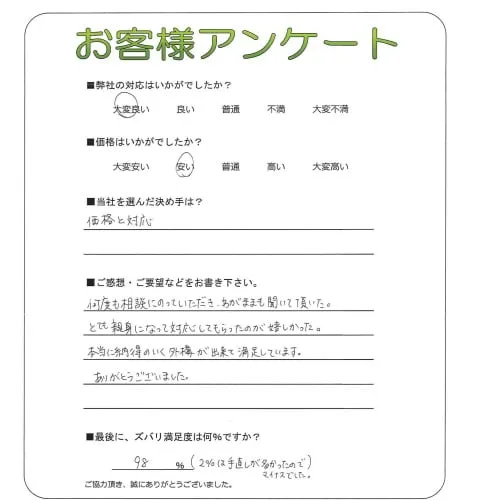 お客様アンケート
■弊社の対応はいかがでしたか?
大変良い 良い 普通 不満 大変不満
■価格はいかがでしたか?
大変安い 安い 普通 高い 大変高い
■当社を選んだ決め手は?
価格と対応
■ご感想・ご要望などをお書き下さい。
何度も相談にのっていただき、わがままも聞いて頂いた。
とても親身になって対応してもらったのが嬉しかった。
本当に納得のいく外構が出来て満足しています。
ありがとうございました。
■最後に、ズバリ満足度は何%ですか?
98 % (2%は手直しが多かったので
マイナスでした。)
ご協力頂き、誠にありがとうございました。